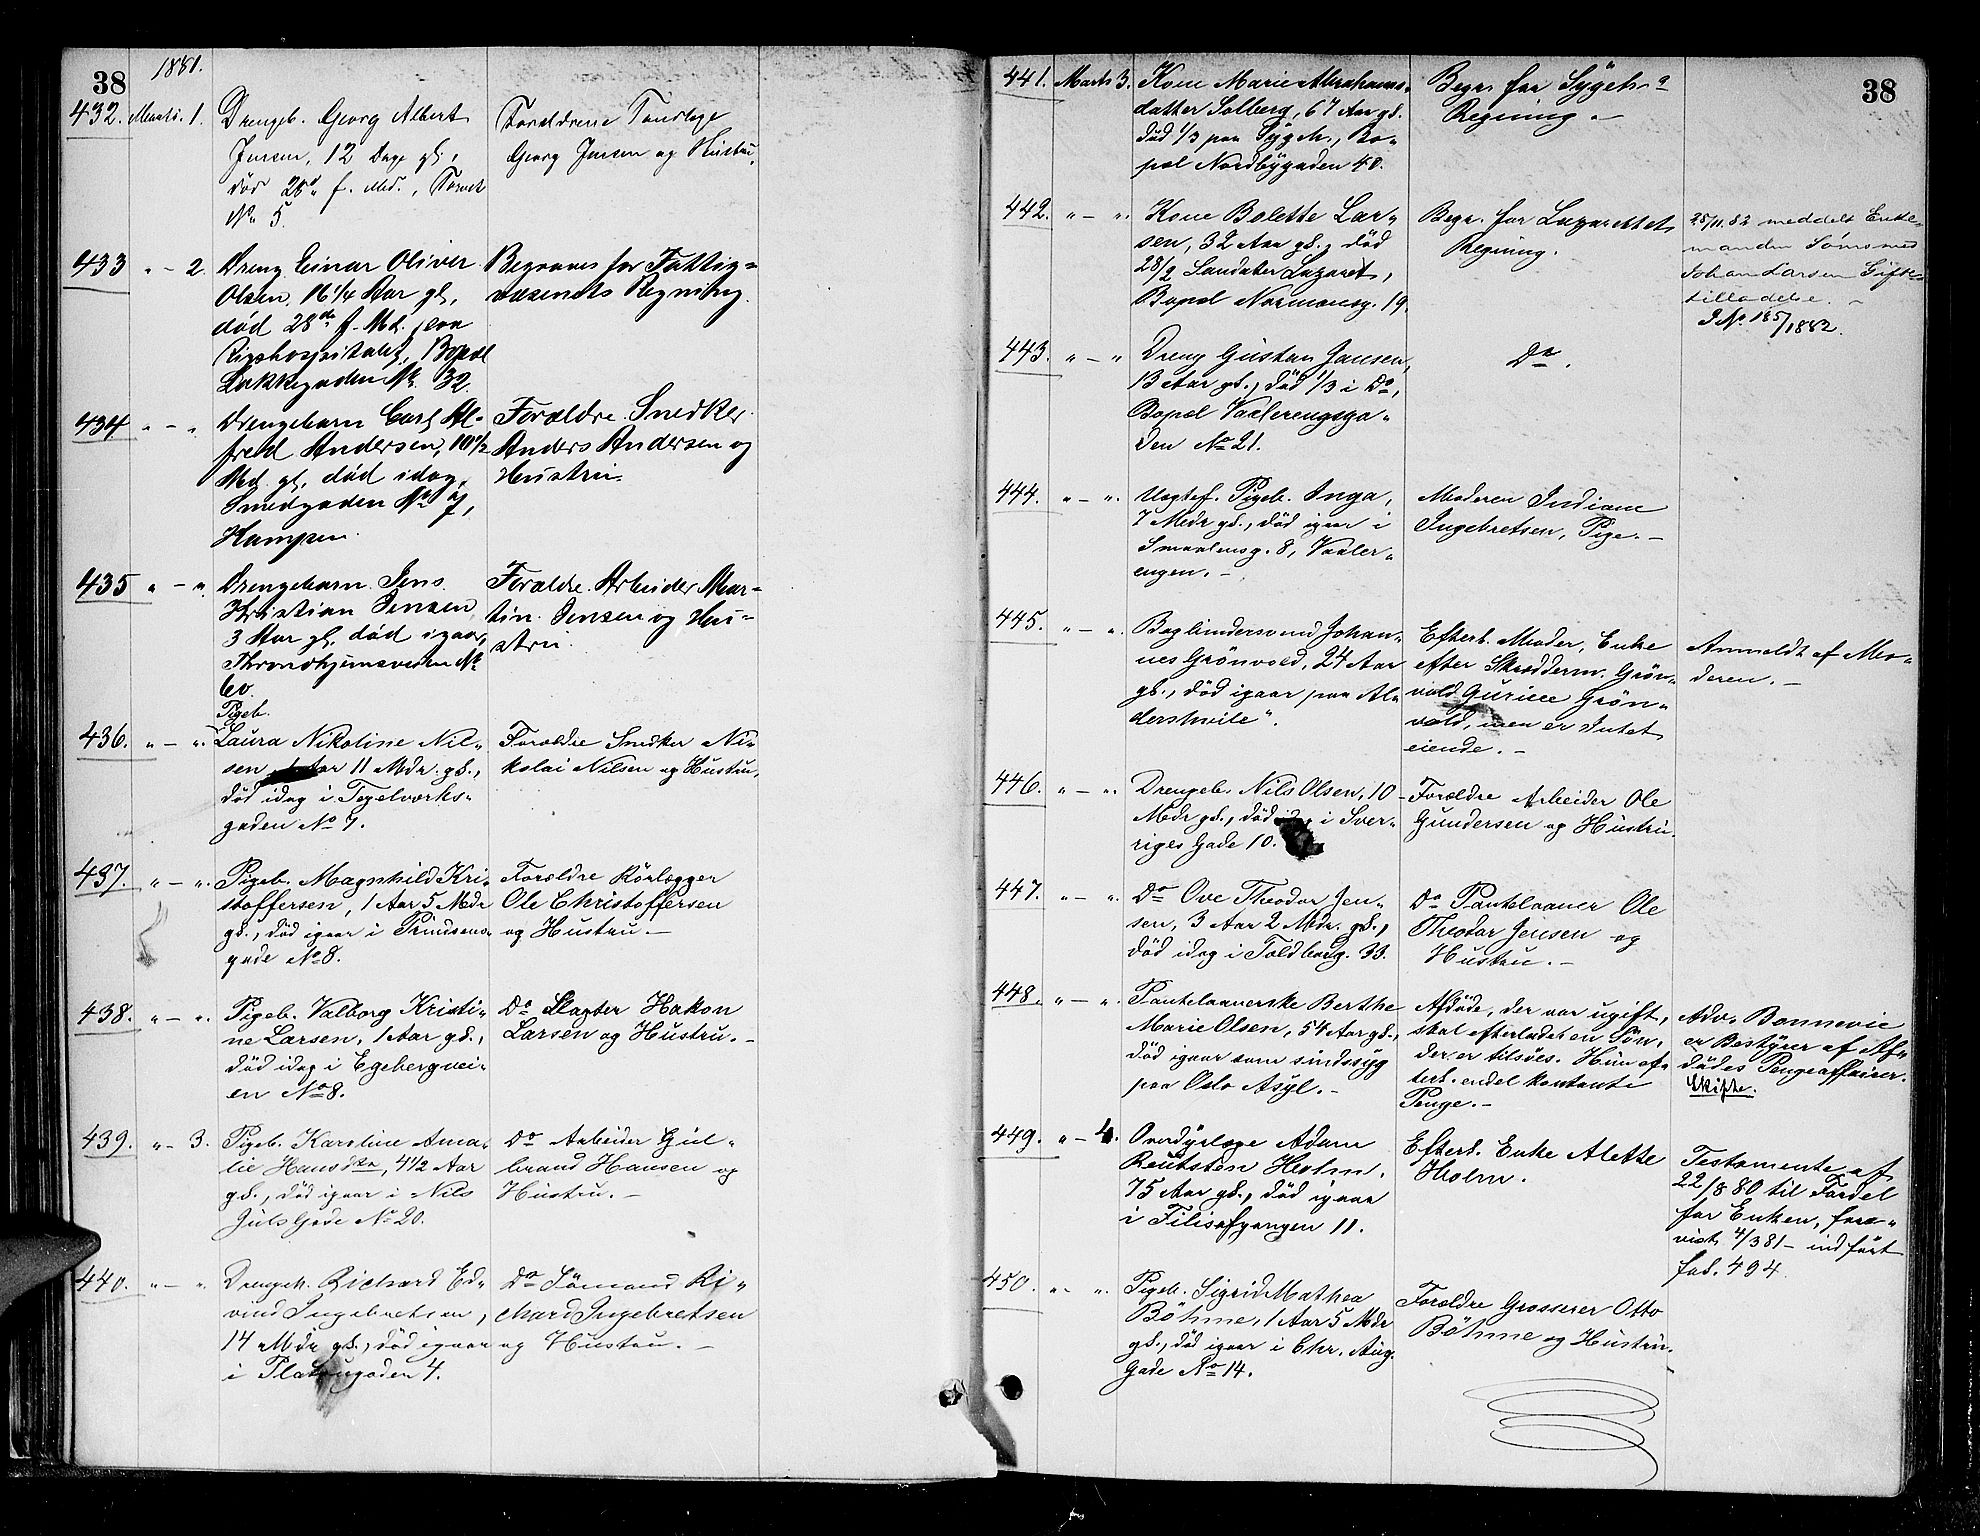 38
1881.
432. Marts. 1. Drengeb. Georg Albert
Jensen, 12 Dage gl.,
død 28de f. Md., Torvet
No 5.
Forældrene Tandlæge
Georg Jensen og Hustru.
433 " - 2. Dreng Einar Oliver
Olsen, 16 1/4 Aar gl,
død 28de f. Md. paa
Rigshospitalet, Bopæl
Lakkegaden No. 32.
Begraves for Fattig=
væsenets Regning.
434 " - " Drengebarn Carl Al-
fred Andersen, 10 1/2
Md. gl, død idag,
Smedgaden No 7,
Kampen.
Forældre Snedker
Anders Andersen og
Hustru.
435 " - " Drengebarn Jens
Kristian Jensen
3 Aar gl, død igaar,
Throndhjemsveien No
60.
Forældre Arbeider Mar=
tin Jensen og Hu=
stru.
Pigeb.
436. " - " Laura Nikoline Nil-
sen, 1 Aar 11 Mdr. gl.,
død idag i Tegelverks-
gaden No 7.
Forældre Snedker Ni-
kolai Nilsen og Hustru.
437. " - " Pigeb. Magnhild Kri-
stoffersen, 1 Aar 5 Mdr
gl., død igaar i Prindsens
gade No 8.
Forældre Rörlægger
Ole Christoffersen
og Hustru. -
438. " - " Pigeb. Valborg Kristi-
ne Larsen, 1 Aar gl.,
død idag i Egebergvei-
en No 8.
Do Slagter Hakon
Larsen og Hustru. -
439. " - 3. Pigeb. Karoline Ama-
lie Hansdtr, 4 1/2 Aar
gl., død igaar i Nils
Juls Gade No 20.
Do Arbeider Gul-
brand Hansen og
Hustru. -
440. " - " Drengeb. Richard Ed-
vind Ingebretsen,
14 Mdr gl., død igaar
i Platougaden 4.
Do Sømand Ri-
chard Ingebretsen
og Hustru. -
38
441. Marts 3. Kone Marie Abrahams-
datter Solberg, 67 Aar gl.
død 1/3 paa Sygeh., Bo-
pæl Nordbygaden 40.
Begr. for Sygeh.s
Regning. -
442. " - " Kone Bolette Lar-
sen, 32 Aar gl., død
28/2 Lazaret,
Bopæl Normansg. 19.
Begr. for Lazarettets
Regning.
28/11.82 meddelt Enke-
manden
Johan Larsen Gifte-
tilladelse. -
J No 185/1882.
443. " - " Dreng Gustav Jansen,
13 Aar gl., død 1/3 i Do,
Bopæl Vaalerengsga-
den No 21.
Do.
444. " - " Uægtef. Pigeb. Inga,
7 Mdr gl., død igaar i
Smaalensg. 8, Vaaler-
engen. -
Moderen Indiane
Ingebretsen, Pige. -
445. " - " Bogbindersvend Johan-
nes Grönvold, 24 Aar
gl., død igaar paa Al-
dershvile".
Efterl. Moder, Enke
efter Skrædderm. Grön-
vold, Gurine Grön-
vold, men er Intet
eiende. -
Anmeldt af Mo-
deren. -
446. " - " Drengeb. Nils Olsen, 10
Mdr gl., død idag i Sver-
riges Gade 10.
Forældre Arbeider Ole
Gundersen og Hustru.
447. " - " Do Ove Theodor Jen-
sen, 3 Aar 2 Mdr. gl.,
død idag i Toldbodg. 33.
Do Pantelaaner Ole
Theodor Jensen og
Hustru. -
448. " - " Pantelaanerske Berthe
Marie Olsen, 54 Aar gl.,
død igaar som sindssyg
paa Oslo Asyl. -
Afdöde, der var ugift,
skal efterladet en Sön,
der er tilsöes. Hun ef-
terl. endel kontante
Penge. -
Adv. Bonnevie
er Bestyrer af Af-
dödes Pengeaffairer.
Skifte.
449. " - 4. Overdyrlæge Adam
Reutsten Holm,
75 Aar gl., død igaar
i Filisafgangen 11.
Efterl. Enke Alette
Holm.
Testamente af
22/8 80 til Fordel
for Enken, fore-
vist 4/3 81 - indført
fol. 494.
450. " - " Pigeb. Sigrid Mathea
Böhme, 1 Aar 5 Mdr
gl., død igaar i Chr. Aug.
Gade No 14.
Forældre Grosserer Otto
Böhme og Hustru.